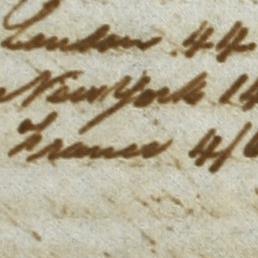 London 44
New York 14
France 4/6